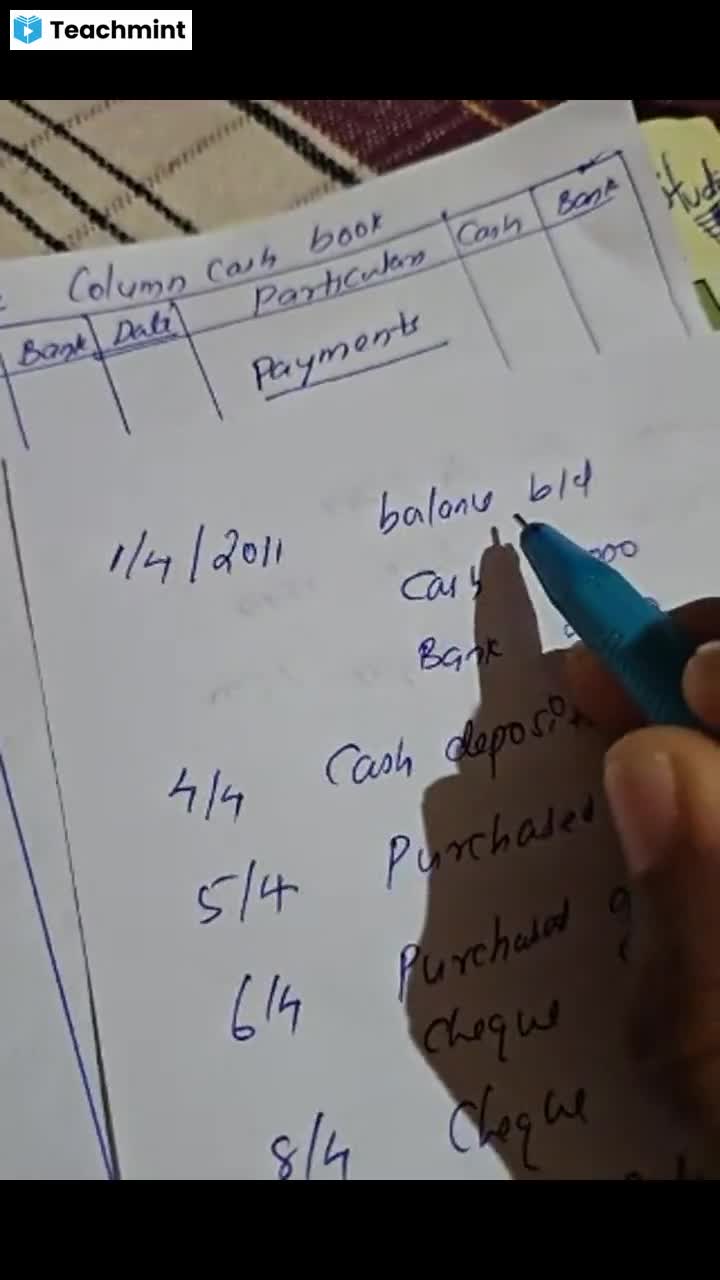 Teachmint
Column Cash book
Bank Date Particulars Cash Bank
Payments
1/4/2011 balance b/d
Cash 000
Bank
4/4 Cash deposit
5/4 Purchased
6/4 Purchased
cheque
8/4 Cheque